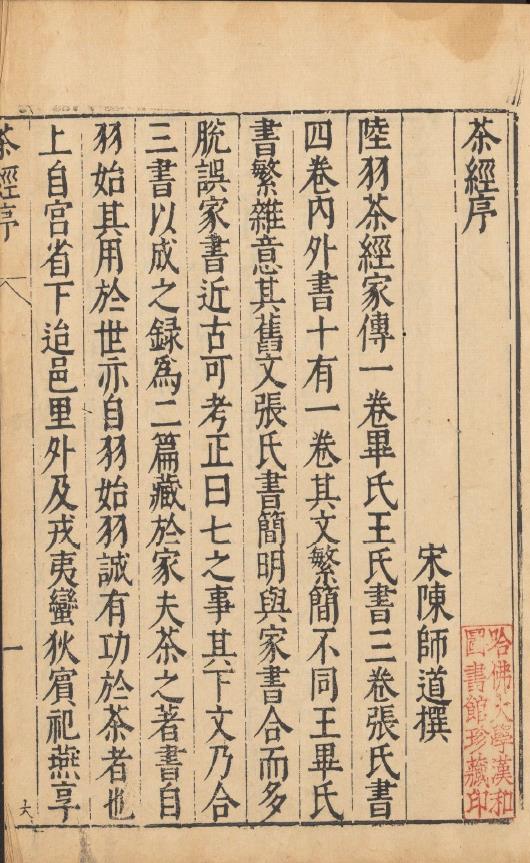 茶經序
宋陳師道撰
陸羽茶經家傳一卷畢氏王氏書三卷張氏書
四卷內外書十有一卷其文繁簡不同王畢氏
書繁雜意其舊文張氏書簡明與家書合而多
脫誤家書近古可考正曰七之事其下文乃合
三書以成之録爲二篇藏於家夫茶之著書自
羽始其用於世亦自羽始羽誠有功於茶者也
上自宮省下迨邑里外及戎夷蠻狄賓祀燕享
茶經序
一
哈佛大學漢和
圖書館珍藏印